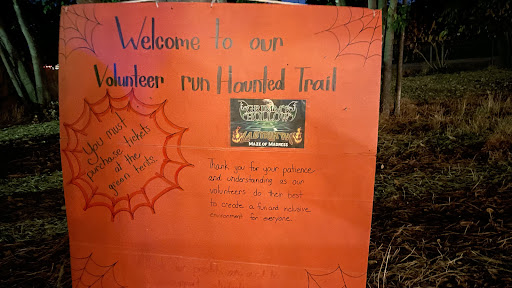 Welcome to our
Volunteer run Haunted Trail
You must
purchase tickets
at the
green tents.
GRIMLOCK
HOLLOW
MAZE OF MADNESS
Thank you for your patience
and understanding as our
volunteers do their best
to create a fun and inclusive
environment for everyone.